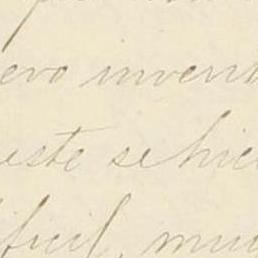 evo invent
este se hic
ificil, muc